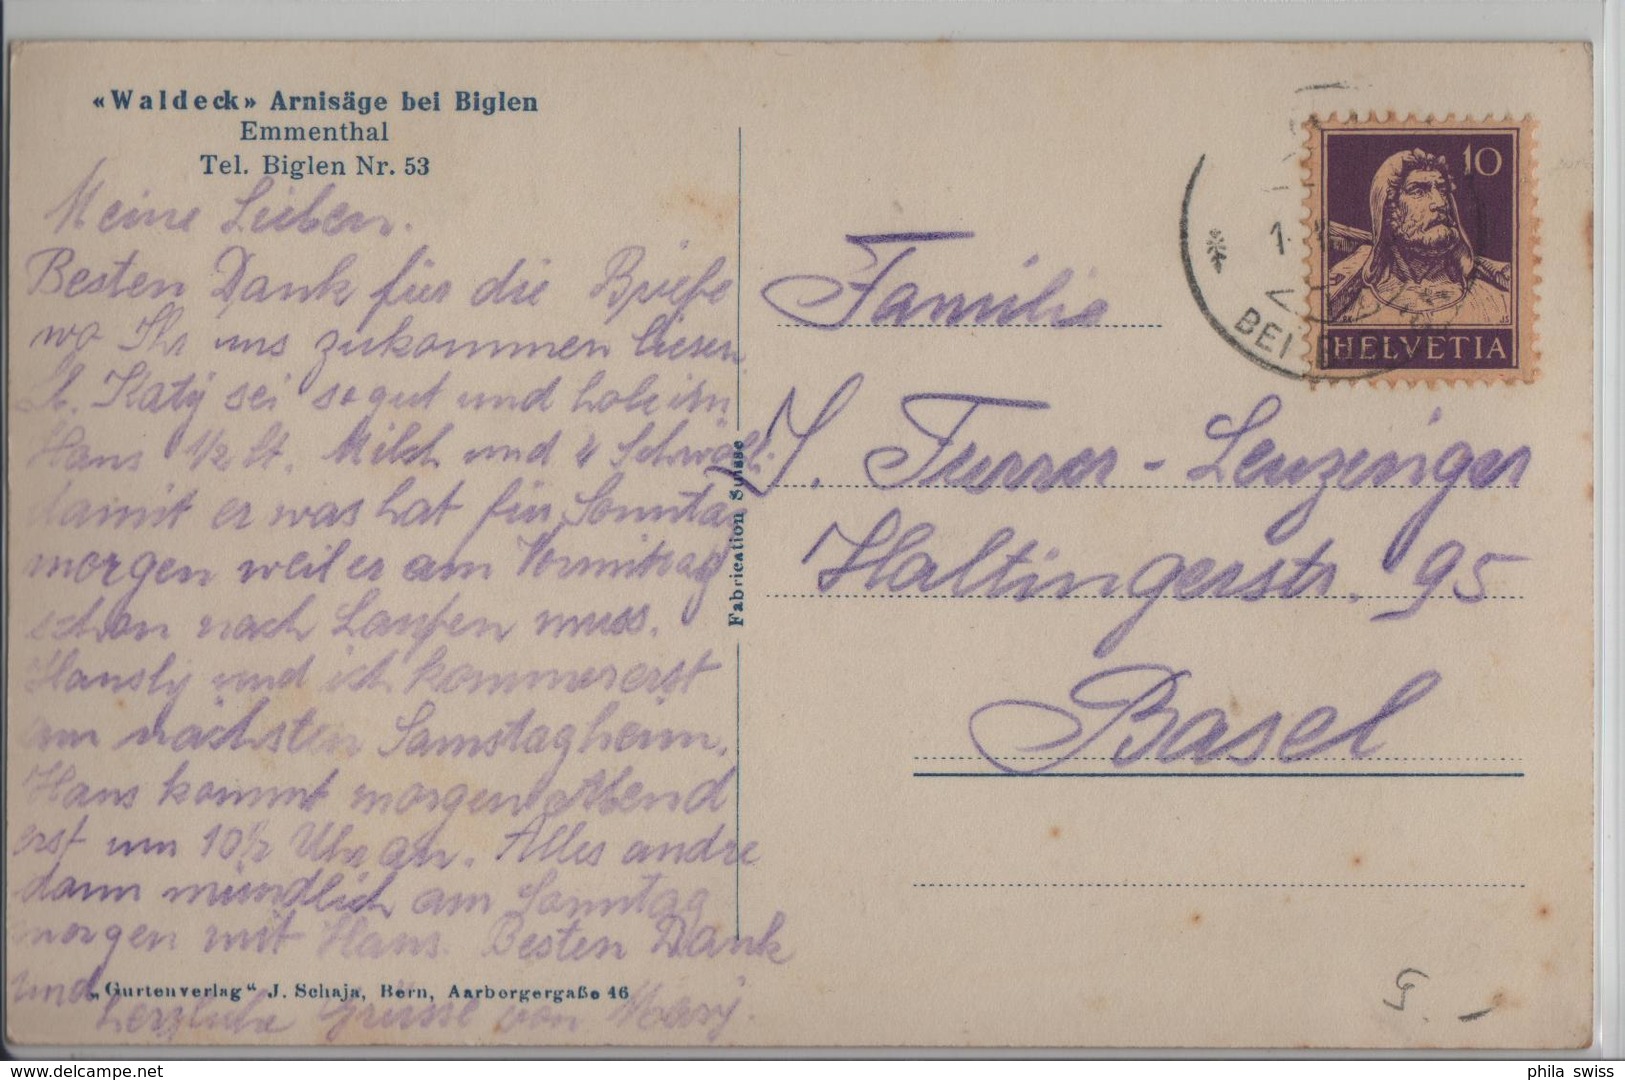 «Waldeck» Arnisäge bei Biglen
Emmenthal
Tel. Biglen Nr. 53
Meine Lieben.
Besten Dank für die Briefe
wo Ihr uns zukommen liesen
Lb. Katÿ sei so gut und hole im
Hans 1/2 lt. Milch und 4 Schwöbli
damit er was hat für Sonntag
morgen weil er am Vormittag
schon nach Laufen muss.
Hansly und ich kommen erst
am nächsten Samstag heim.
Hans kommt morgen Abend
erst um 10½ Uhr an. Alles andre
dann mündlich am Sonntag
morgen mit Hans. Besten Dank
und
herzliche Grüsse von Mary.
„Gurtenverlag“ J. Schaja, Bern, Aarbergergaße 46
Fabrication Suisse
Familie
J. Furrer-Leuzinger
Haltingerstr. 95
Basel
10
HELVETIA
BEI
phila swiss